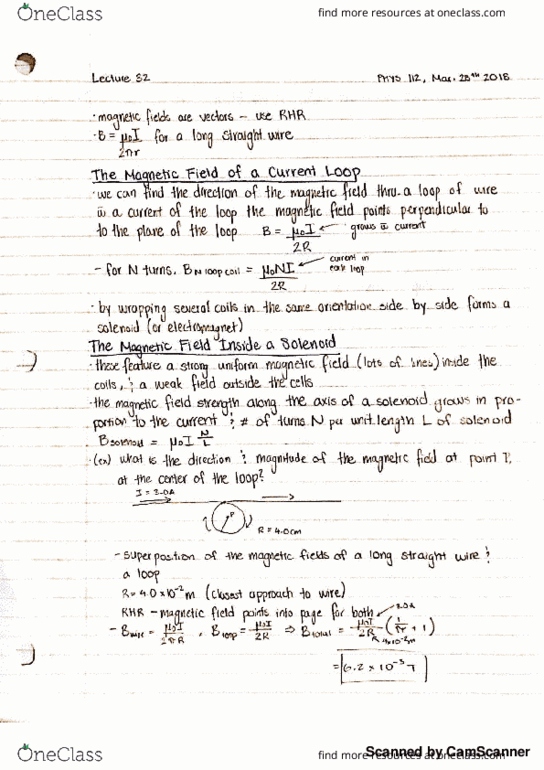 OneClass
find more resources at oneclass.com
Lecture 32
Phys 112, Mar. 28th 2018
· magnetic fields are vectors – use RHR
· B = μ₀I / 2πr for a long straight wire
The Magnetic Field of a Current Loop
· we can find the direction of the magnetic field thru a loop of wire
w̄ a current of the loop the magnetic field points perpendicular to
to the plane of the loop B = μ₀I / 2R ← grows w̄ current
– for N turns, B N loop coil = μ₀NI / 2R ← current in each loop
· by wrapping several coils in the same orientation side by side forms a
solenoid (or electromagnet)
The Magnetic Field Inside a Solenoid
· these feature a strong uniform magnetic field (lots of lines) inside the
coils, & a weak field outside the cells
· the magnetic field strength along the axis of a solenoid grows in pro-
portion to the current & # of turns N per unit length L of solenoid
B solenoid = μ₀I N/L
· (ex) what is the direction & magnitude of the magnetic field at point P,
at the center of the loop?
I = 3.0A
P
R = 4.0cm
– superposition of the magnetic fields of a long straight wire &
a loop
R = 4.0 × 10⁻² m (closest approach to wire)
RHR – magnetic field points into page for both
– B wire = μ₀I / 2πR , B loop = μ₀I / 2R ⇒ B total = μ₀I / 2R (1/π + 1)
= 6.2 × 10⁻⁵ T
OneClass
find more resources at oneclass.com
Scanned by CamScanner